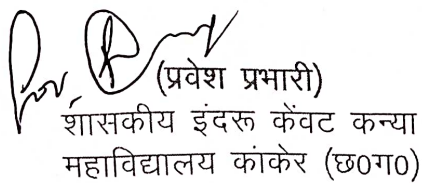 (प्रवेश प्रभारी)
शासकीय इंदरू केंवट कन्या
महाविद्यालय कांकेर (छ0ग0)